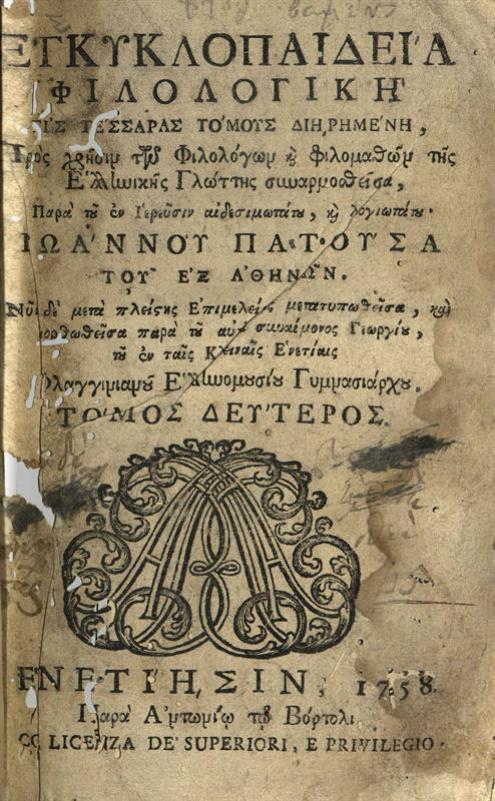 ΕΓΚΥΚΛΟΠΑΙΔΕΙΆ
ΦΙΛΟΛΟΓΙΚΗ`
ΕΙΣ ΤΕ'ΣΣΑΡΑΣ ΤΟ'ΜΟΥΣ ΔΙΗ,ΡΗΜΕ'ΝΗ,
Πρὸς χρῆσιν τῶν Φιλολόγων ϗ φιλομαθῶν τῆς
Ἑλληνικῆς Γλώττης συναρμοσθεῖσα,
Παρὰ τοῦ ἐν Ἱερεῦσιν αἰδεσιμωτάτου, ϗ λογιωτάτου
ΙΩΑ'ΝΝΟΥ ΠΑΤΟΥΣΑ
ΤΟΥ~ ΕΞ ΑΘΗΝΩ~Ν.
Νῦν δὲ μετὰ πλείστης Ἐπιμελείας μετατυπωθεῖσα, καὶ
διορθωθεῖσα παρὰ τοῦ αὐτοῦ συναίμονος Γεωργίου,
τοῦ ἐν ταῖς Κλειναῖς Ἐνετίαις
Φλαγγινιανοῦ Ἑλληνομουσίου Γυμνασιάρχου.
ΤΟ'ΜΟΣ ΔΕΥ'ΤΕΡΟΣ.
ΕΝΕΤΙΗ,ΣΙΝ, 1758.
Παρὰ Ἀντωνίῳ τῷ Βόρτολι
CO LICENZA DE' SUPERIORI, E PRIVILEGIO.